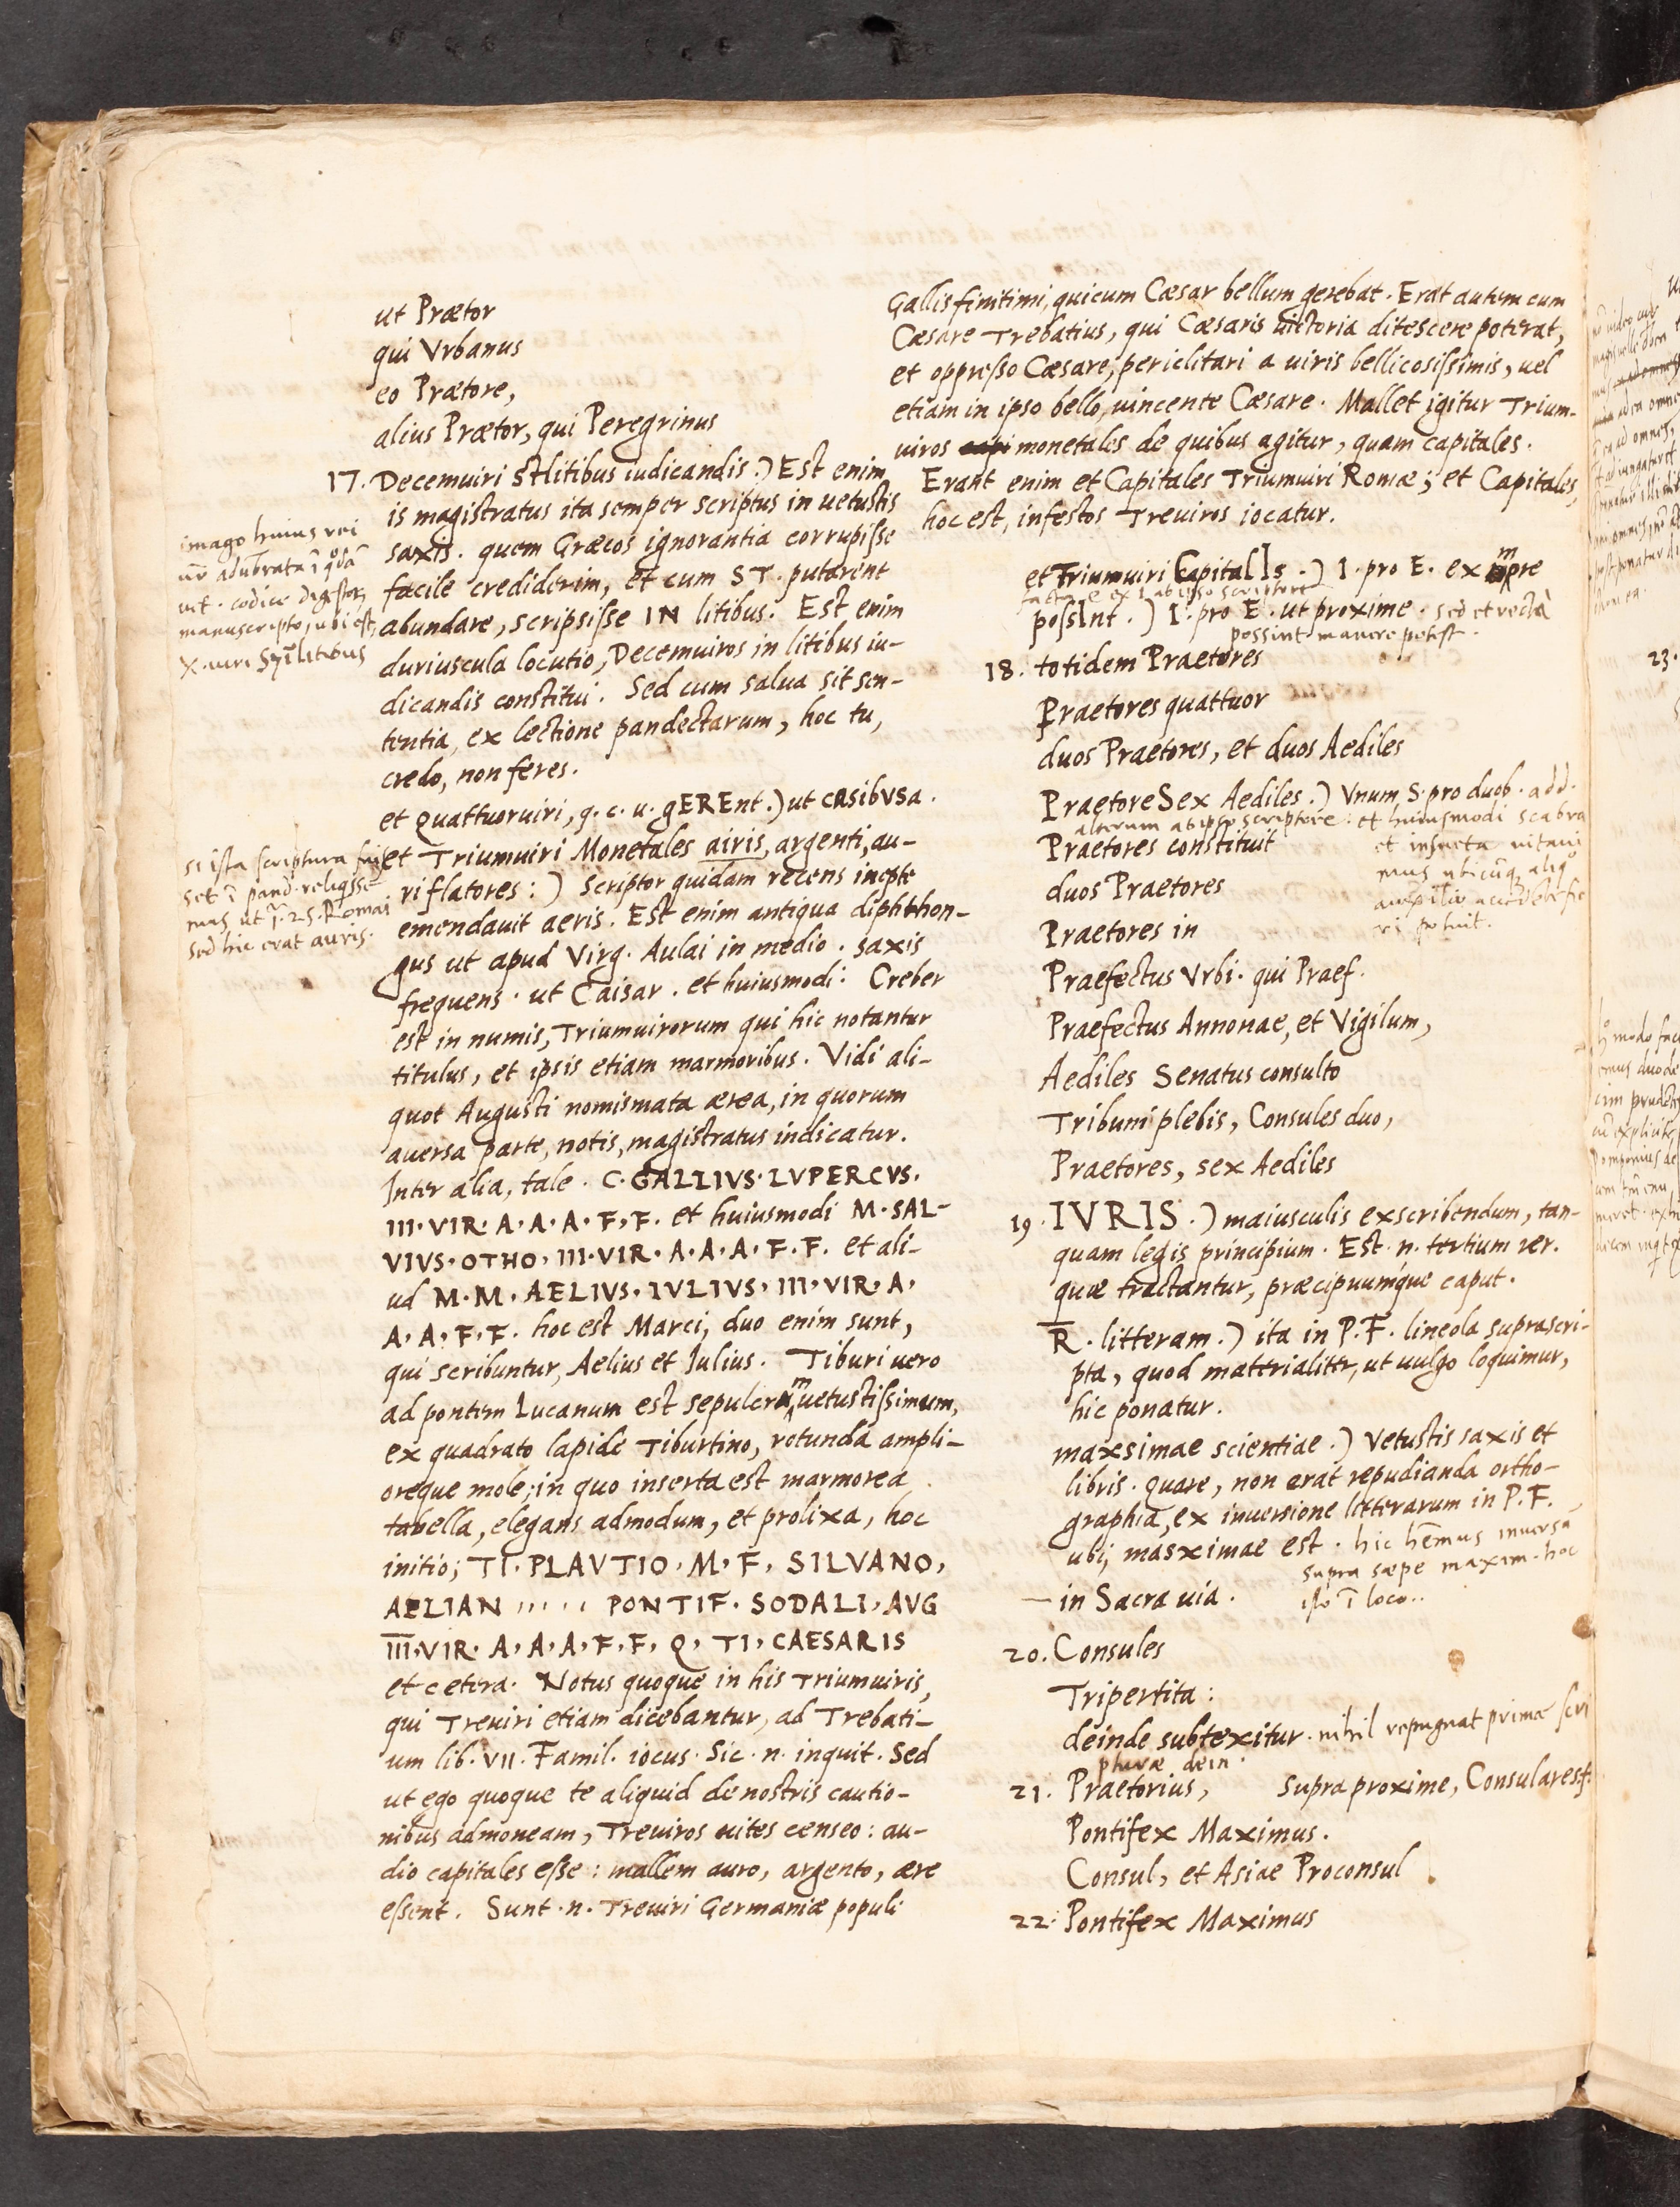 ut Prætor
qui Vrbanus
eo Prætore,
alius Prætor, qui Peregrinus
17. Decemuiri Stlitibus iudicandis.) Est enim
is magistratus ita semper scriptus in uetustis
saxis. quem Græcos ignorantia corrupisse
facile crediderim, et cum ST. putarent
abundare, scripsisse IN litibus. Est enim
duriuscula locutio, Decemuiros in litibus iu-
dicandis constitui. Sed cum salua sit sen-
tentia, ex lectione pandectarum, hoc tu,
credo, non feres.
imago huius rei
adūbrata ī
uet. codice digestoꝝ
manuscripto, ubi est,
X. uiri litibus
et Quattuoruiri, q. c. u. gERENT.) ut CASIBVSA.
et Triumuiri Monetales airis, argenti, au-
ri flatores:) Scriptor quidam recens inepte
emendauit aeris. Est enim antiqua diphthon-
gus ut apud Virg. Aulai in medio. saxis
frequens. ut Caisar. et huiusmodi. Creber
est in numis, Triumuirorum qui hic notantur
titulus, et ipsis etiam marmoribus. Vidi ali-
quot Augusti nomismata ærea, in quorum
auersa parte, notis, magistratus indicatur.
Inter alia, tale. C. GALLIVS. LVPERCVS.
III. VIR. A. A. A. F. F. et huiusmodi M. SAL-
VIVS. OTHO. III. VIR. A. A. A. F. F. et ali-
ud M. M. AELIVS. IVLIVS. III. VIR. A.
A. A. F. F. hoc est Marci, duo enim sunt,
qui scribuntur, Aelius et Iulius. Tiburi uero
ad pontem Lucanum est sepulcrum uetustissimum,
ex quadrato lapide Tiburtino, rotunda ampli-
oreque mole; in quo inserta est marmorea
tabella, elegans admodum, et prolixa, hoc
initio; TI. PLAVTIO. M. F. SILVANO,
AELIAN ..... PONTIF. SODALI. AVG
III. VIR. A. A. A. F. F. Q. TI. CAESARIS
et cetera. Notus quoque in his Triumuiris,
qui Treuiri etiam dicebantur, ad Trebati-
um lib. VII. Famil. iocus. Sic. n. inquit. Sed
ut ego quoque te aliquid de nostris cautio-
nibus admoneam, Treuiros uites censeo: au-
dio capitales esse: mallem auro, argento, ære
essent. Sunt. n. Treuiri Germaniæ populi
si ista scriptura
set ī pand. reliqsse
mus ut 25. Romai
sed hic erat auris.
Gallis finitimi, quicum Cæsar bellum gerebat. Erat autem cum
Cæsare Trebatius, qui Cæsaris uictoria ditescere poterat,
et oppresso Cæsare, periclitari a uiris bellicosissimis, uel
etiam in ipso bello, uincente Cæsare. Mallet igitur Trium-
uiros monetales de quibus agitur, quam capitales.
Erant enim et Capitales Triumuiri Romæ; et Capitales,
hoc est, infestos Treuiros iocatur.
et Triumuiri CapitalIs.) I. pro E. ex
facta e ex I ab ipso scriptore
possInt.) I. pro E. ut proxime. sed et recta
possint manere potest.
18. totidem Praetores
Praetores quattuor
duos Praetores, et duos Aediles
PraetoreSex Aediles.) Vnum S. pro duob. add.
alterum ab ipso scriptore. et huiusmodi scabra
Praetores constituit
et infueta uitaui
mus ubicūq aliq
duos Praetores
Praetores in
ri potuit.
Praefectus Vrbi. qui Praef.
Praefectus Annonae, et Vigilum,
Aediles Senatus consulto
Tribuni plebis, Consules duo,
Praetores, sex Aediles
19. IVRIS.) maiusculis exscribendum, tan-
quam legis principium. Est. n. tertium rer.
quæ tractantur, præcipuumque caput.
R. litteram.) ita in P. F. lineola suprascri-
pta, quod materialiter, ut uulgo loquimur,
hic ponatur.
maxsimae scientiae.) Vetustis saxis et
libris. quare, non erat repudianda ortho-
graphia, ex inuersione litterarum in P. F.
ubi, masximae est. hic hēmus inuersa
supra sæpe maxim. hoc
isto ī loco..
in Sacra uia.
20. Consules
Tripertita:
deinde subtexitur. nihil repugnat primæ scri
pturæ dein.
21. Praetorius, Supra proxime, Consulares.
Pontifex Maximus.
Consul, et Asiae Proconsul
22. Pontifex Maximus
23.